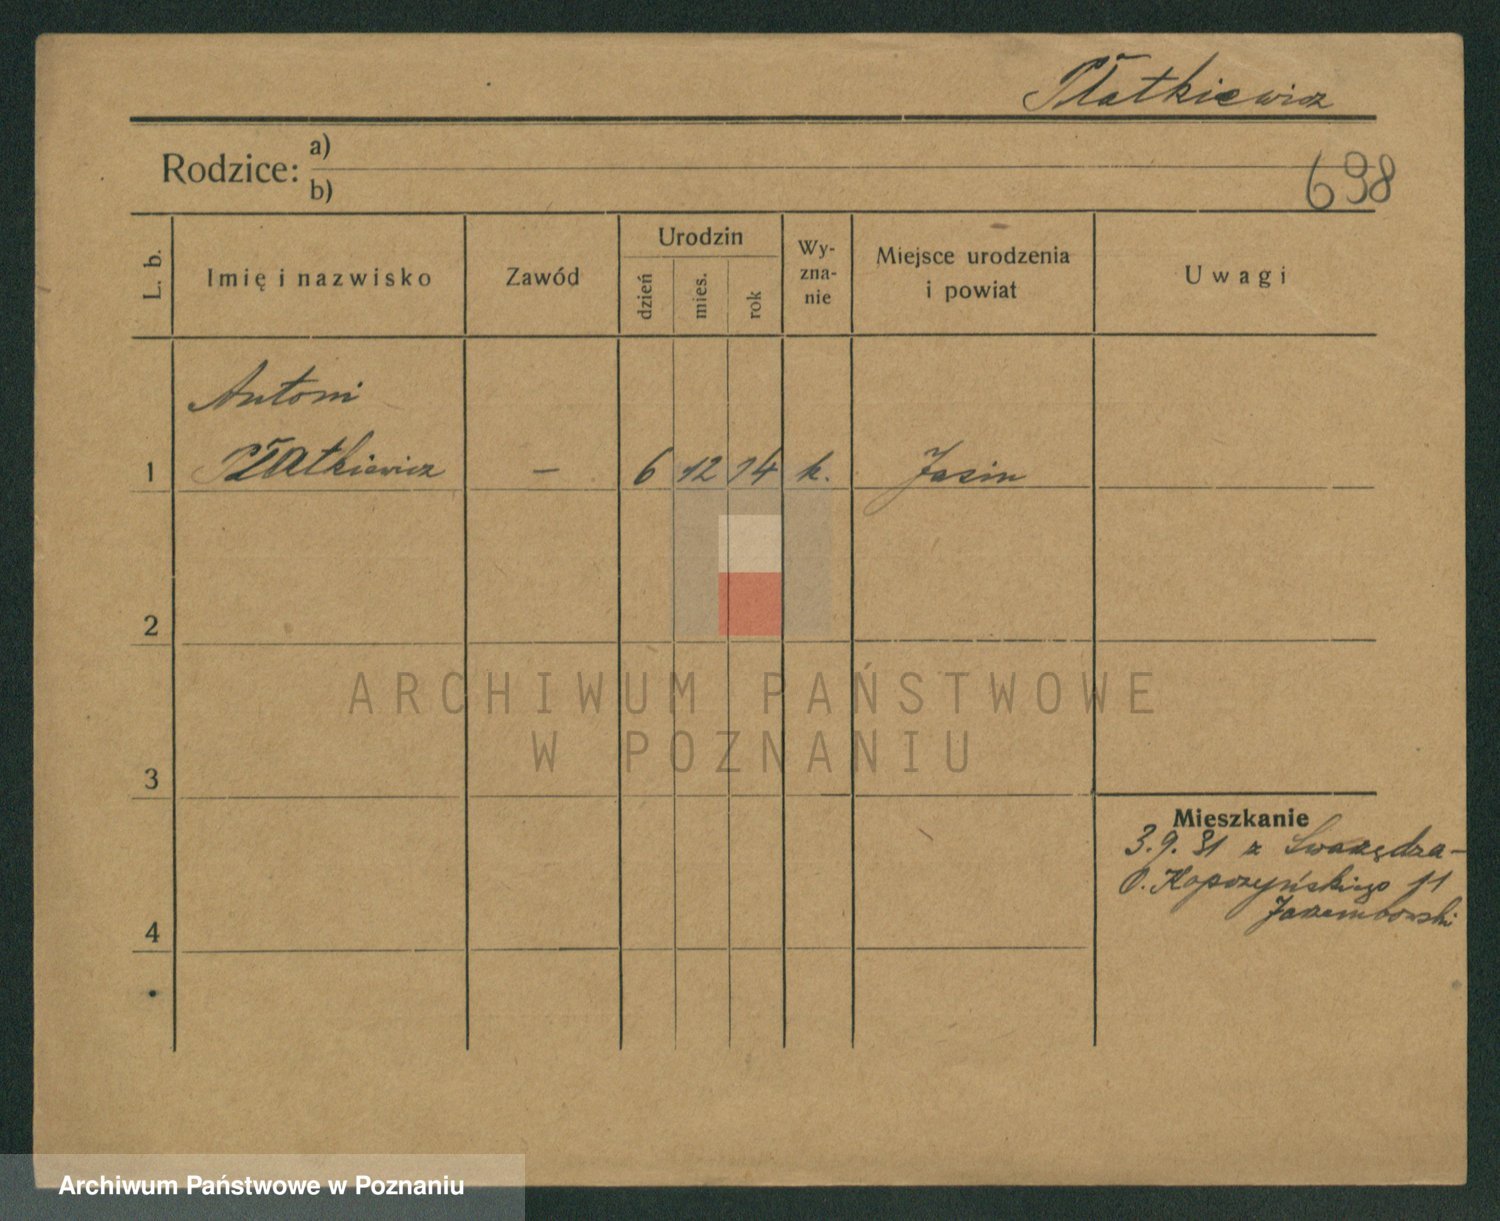 Płatkiewicz
Rodzice: a)
b)
698
L. b.
Imię i nazwisko
Zawód
Urodzin
dzień
mies.
rok
Wy-
zna-
nie
Miejsce urodzenia
i powiat
Uwagi
Antoni
1 Płatkiewicz — 6 12 14 k. Jasin
2
ARCHIWUM PAŃSTWOWE
W POZNANIU
3
Mieszkanie
3.9.31 z Swarzędza-
O. Kopczyńskiego 11
Jarembowski
4
Archiwum Państwowe w Poznaniu